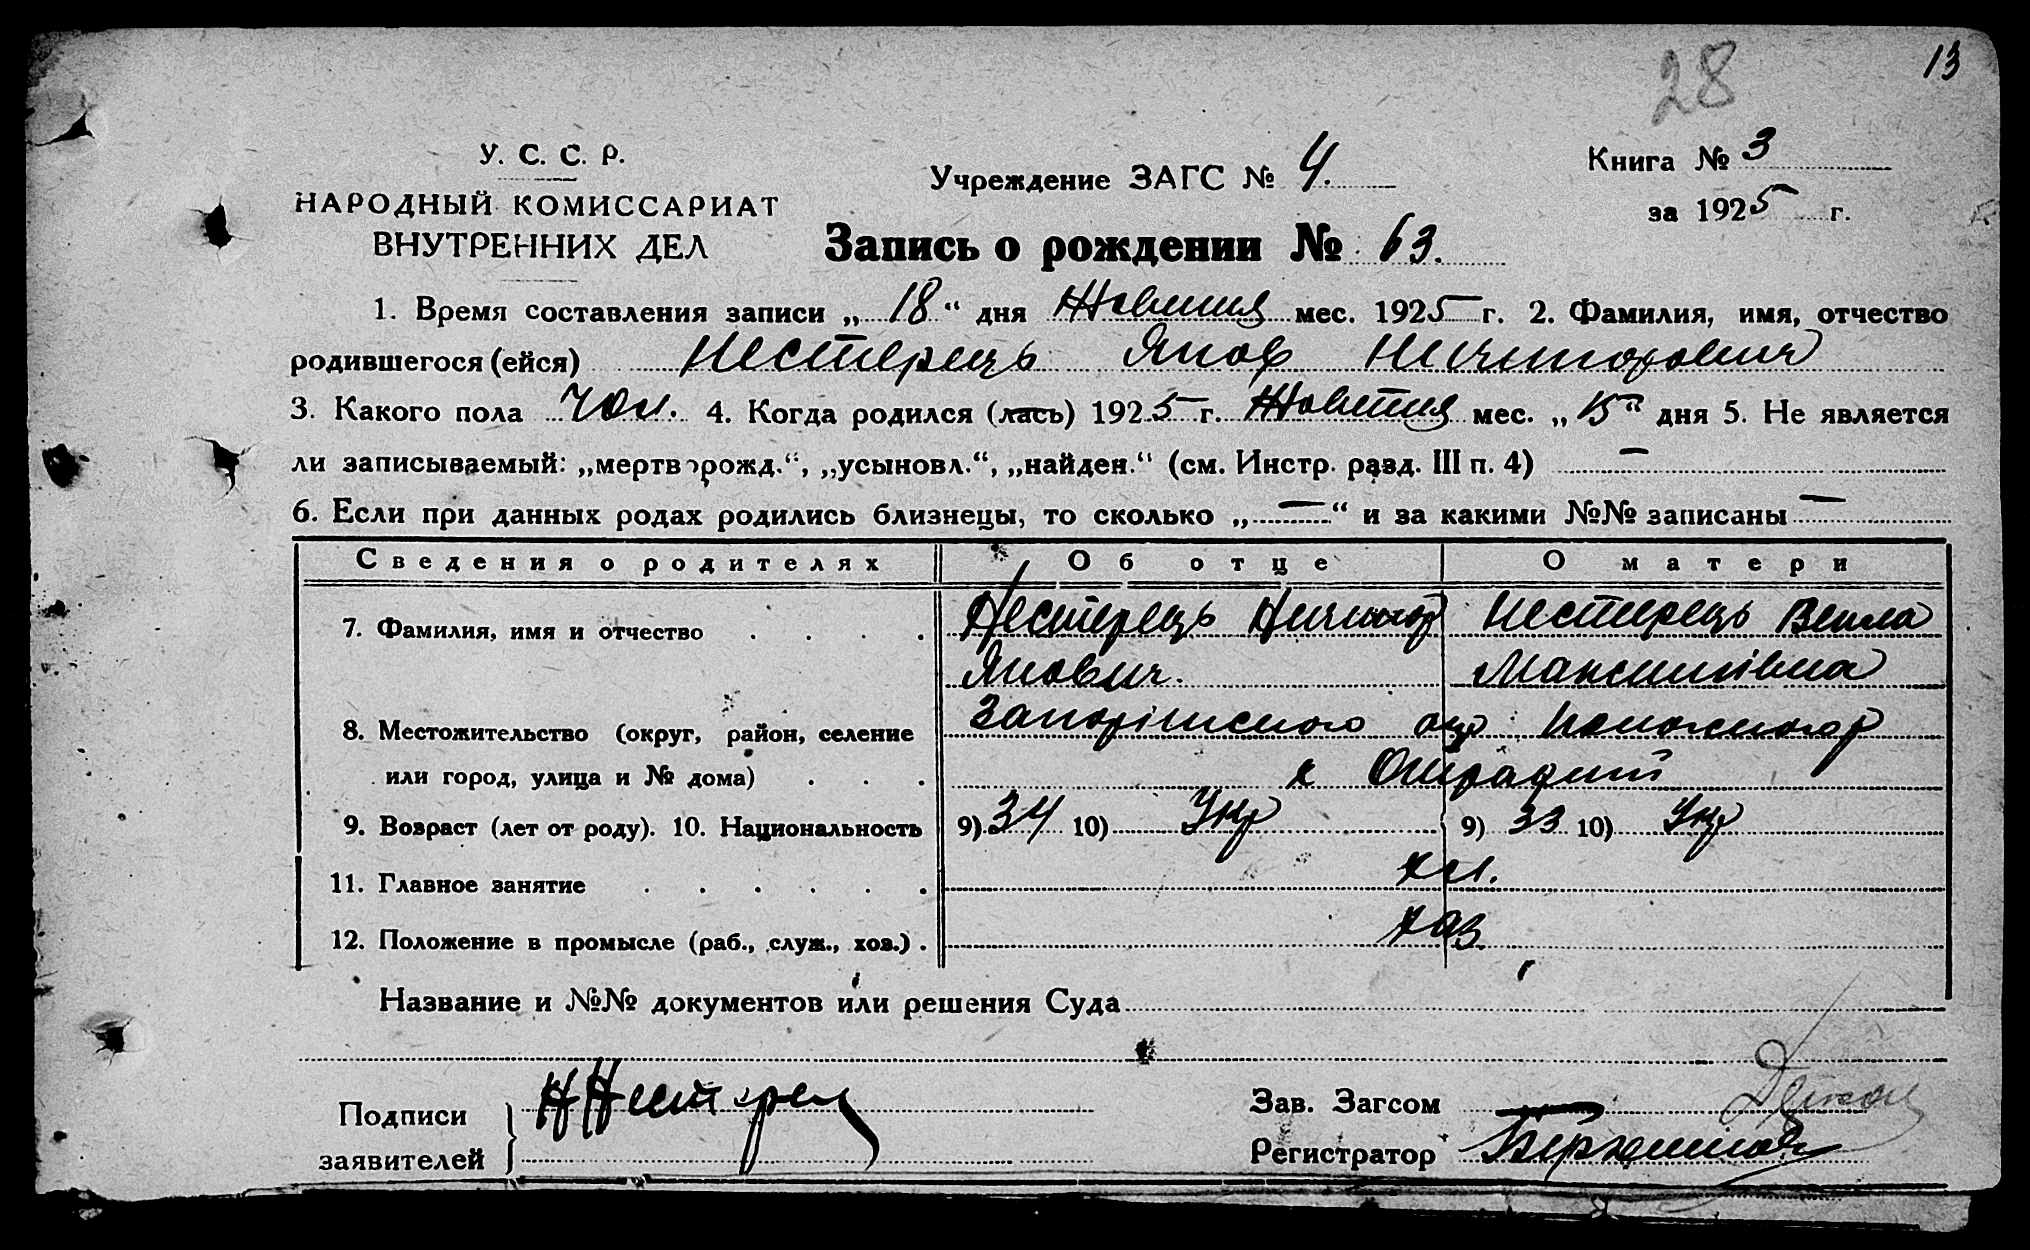 28
13
У. С. С. Р.
НАРОДНЫЙ КОМИССАРИАТ
ВНУТРЕННИХ ДЕЛ
Учреждение ЗАГС № 4.
Книга № 3
за 1925 г.
Запись о рождении № 63.
1. Время составления записи „ 18 “ дня Жовтня мес. 1925 г. 2. Фамилия, имя, отчество
родившегося (ейся) Нестерець Яков Ничипорович
3. Какого пола чол. 4. Когда родился (лась) 1925 г. Жовтня мес. „ 15 “ дня 5. Не является
ли записываемый: „мертворожд.“, „усыновл.“, „найден.“ (см. Инстр. разд. III п. 4) —
6. Если при данных родах родились близнецы, то сколько „ — “ и за какими №№ записаны —
Сведения о родителях Об отце О матери
7. Фамилия, имя и отчество . . . . Нестерець Ничипор Нестерець Векла
Якович. Максимівна
8. Местожительство (округ, район, селение Запоріжського окр
или город, улица и № дома) . . . х
9. Возраст (лет от роду). 10. Национальность 9) 34 10) Укр 9) 33 10) Укр
11. Главное занятие . . . . . . хл.
12. Положение в промысле (раб., служ., хоз.) . хаз
Название и №№ документов или решения Суда
Подписи
заявителей
Н Нестерец
Зав. Загсом
Регистратор